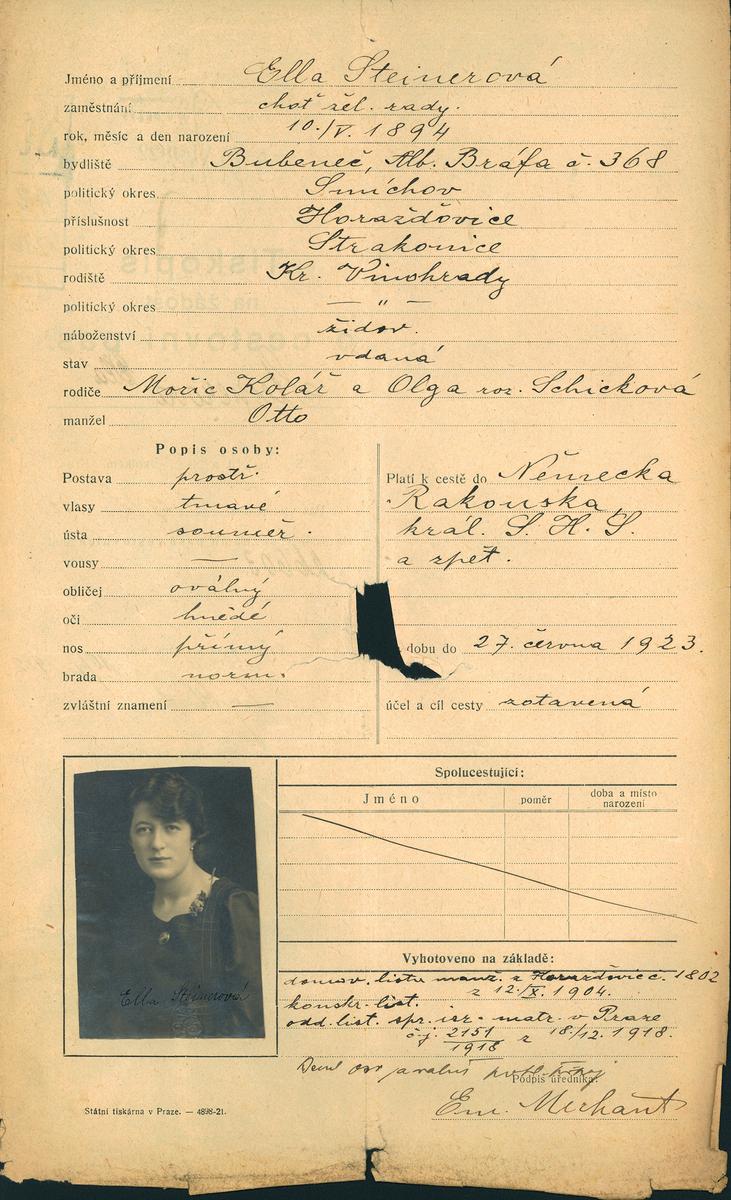 Jméno a příjmení Ella Steinerová
zaměstnání choť žel. rady.
rok, měsíc a den narození 10./V. 1894
bydliště Bubeneč, Alb. Bráfa č. 368
politický okres Smíchov
příslušnost Horažďovice
politický okres Strakonice
rodiště Kr. Vinohrady
politický okres — " —
náboženství židov.
stav vdaná
rodiče Mořic Kolář a Olga roz. Schicková
manžel Otto
Popis osoby:
Postava prostř.
vlasy tmavé
ústa souměr.
vousy —
obličej oválný
oči hnědé
nos přímý
brada norm.
zvláštní znamení —
Platí k cestě do Německa
Rakouska,
král. S. H. S.
a zpět.
dobu do 27. června 1923.
účel a cíl cesty zotavená
Spolucestující:
Jméno poměr doba a místo narození
Ella Steinerová
Vyhotoveno na základě:
domov. listu manž. z Horažďovic č. 1802
z 12./X. 1904.
konskr. list.
odd. list. spr. isr. matr. v Praze
čj. 2151/1918 z 18./12. 1918.
Podpis úředníka:
Em. Merhant
Státní tiskárna v Praze. — 4898-21.